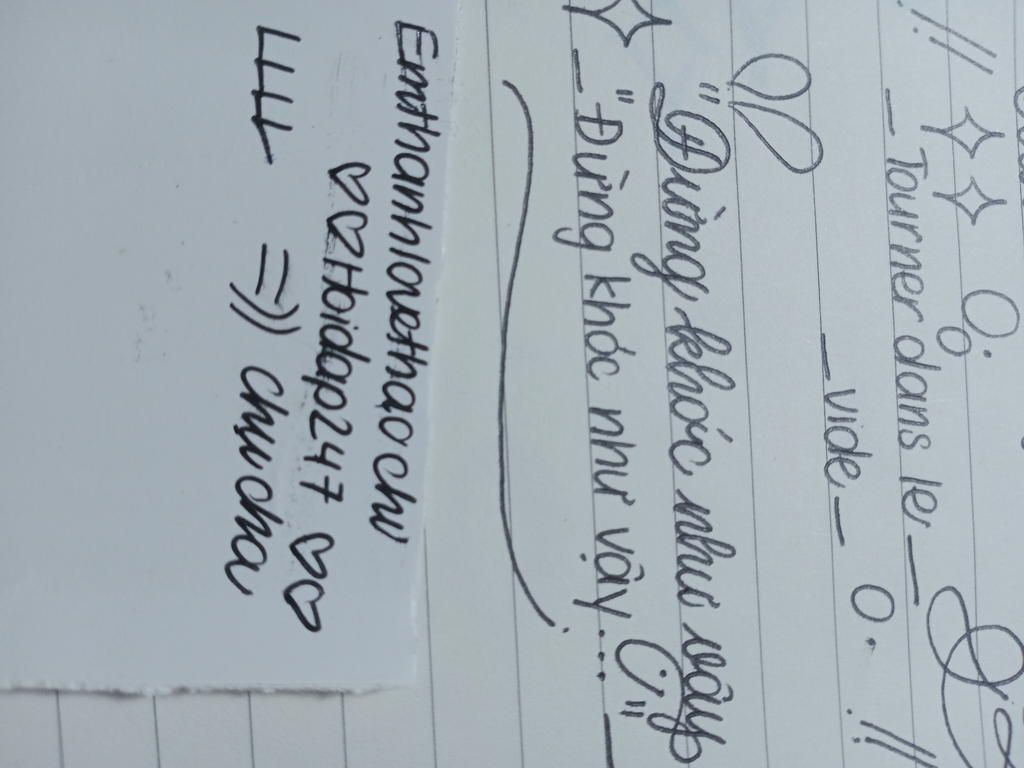 _ Tourner dans le _
_ vide _
"Đừng khóc như vậy"
_ "Đừng khóc như vậy..." _
Emthanhlovethaochi
♡♡Hoidap247 ♡♡
LLL =)) chưcha